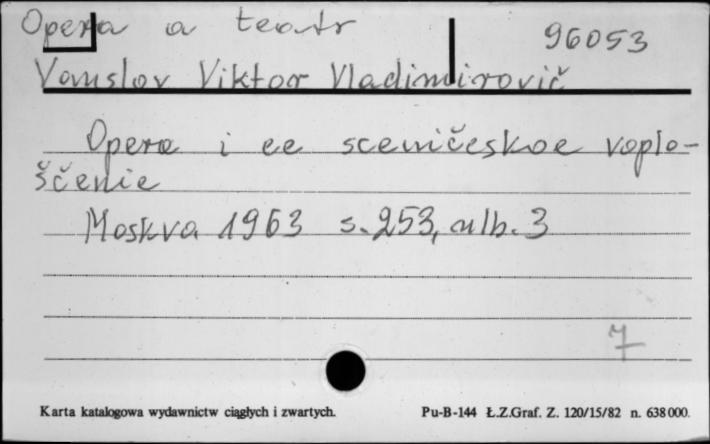 Opera a teatr
96053
Vanslov Viktor Vladimirovič
Opera i ee sceničeskoe voplo-
ščenie
Moskva 1963 s. 253, nlb. 3
7
Karta katalogowa wydawnictw ciągłych i zwartych.
Pu-B-144 Ł.Z.Graf. Z. 120/15/82 n. 638000.